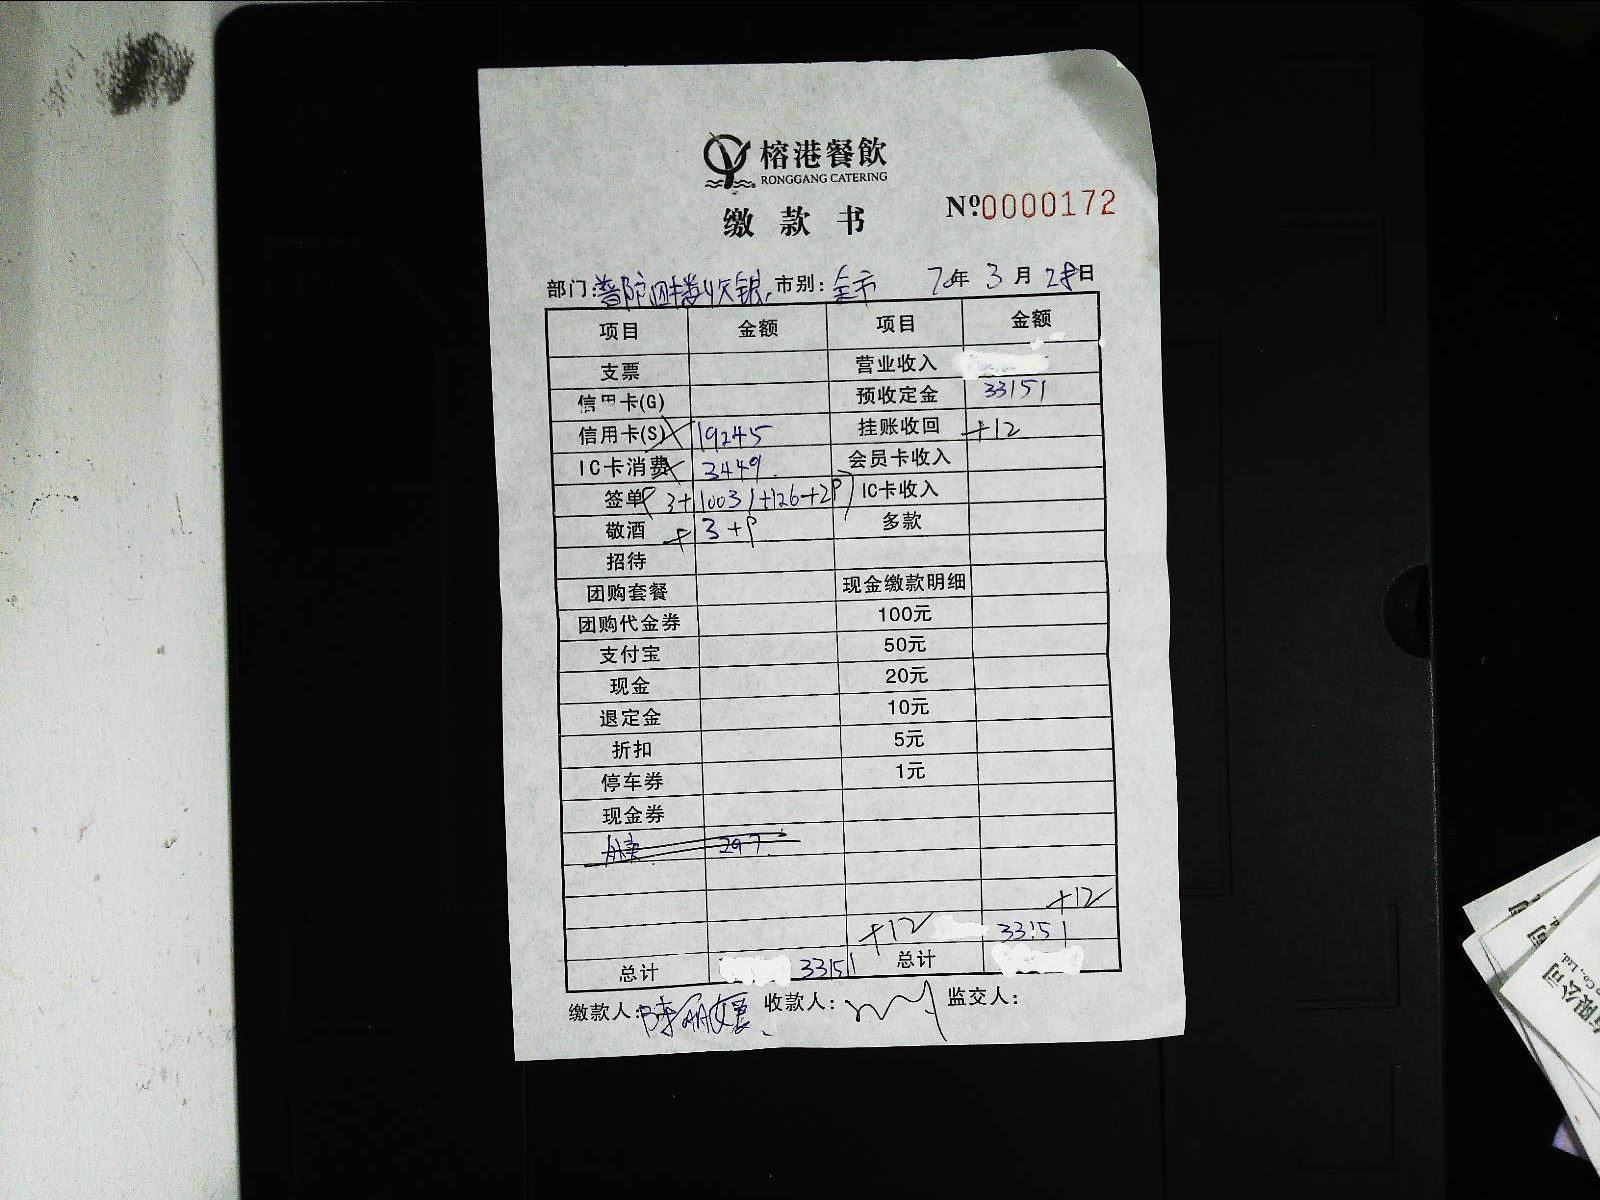 榕港餐飲
RONGGANG CATERING
缴款书
No 0000172
部门: 普陀四楼收银 市别: 全市 年 3 月 28 日
项目 金额 项目 金额
支票 营业收入
信用卡(G) 预收定金 33151
信用卡(S) 19245 挂账收回 +12
IC卡消费 3449 会员卡收入
签单 3+10031+126+2 IC卡收入
敬酒 +3+ 多款
招待
团购套餐 现金缴款明细
团购代金券 100元
支付宝 50元
现金 20元
退定金 10元
折扣 5元
停车券 1元
现金券
297
+12
+12 33151
总计 33151 总计
缴款人: 陈丽媛 收款人: 监交人:
有限公司
Co., Ltd.